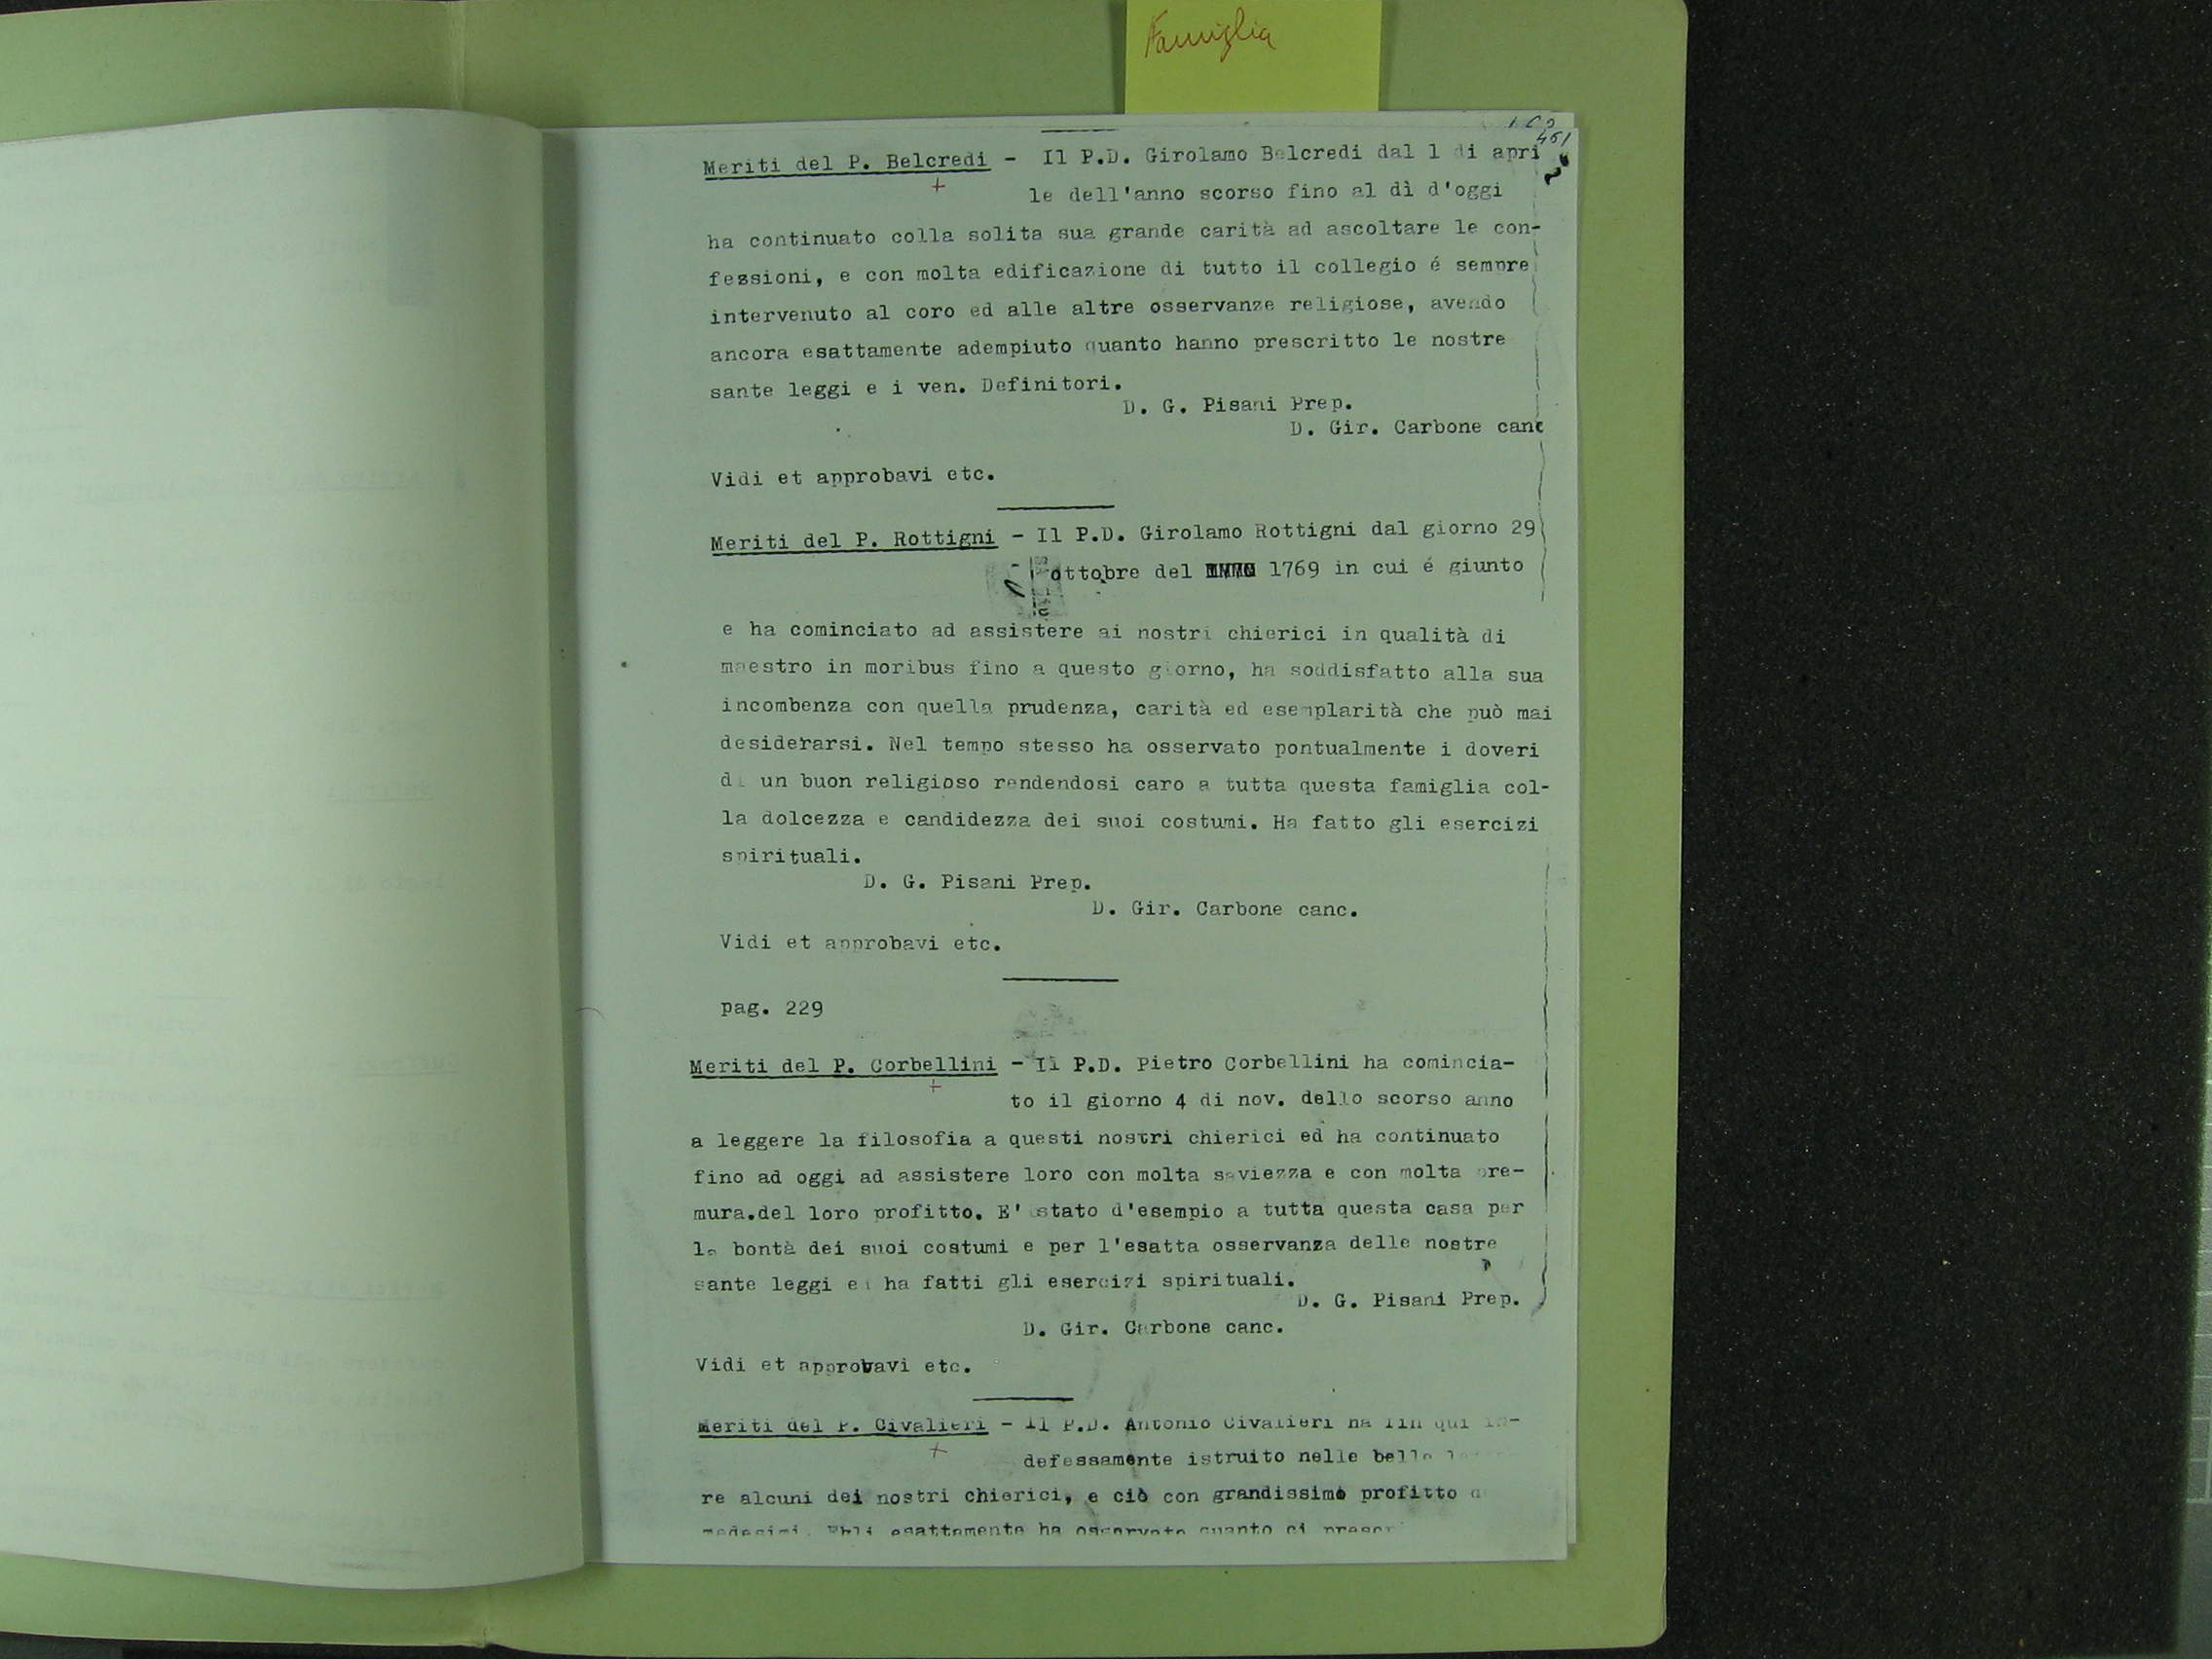 Famiglia
461
Meriti del P. Belcredi - Il P.D. Girolamo Belcredi dal 1 di apri
le dell'anno scorso fino al dì d'oggi
ha continuato colla solita sua grande carità ad ascoltare le con-
fessioni, e con molta edificazione di tutto il collegio é sempre
intervenuto al coro ed alle altre osservanze religiose, avendo
ancora esattamente adempiuto quanto hanno prescritto le nostre
sante leggi e i ven. Definitori.
D. G. Pisani Prep.
D. Gir. Carbone canc
Vidi et approbavi etc.
Meriti del P. Rottigni - Il P.D. Girolamo Rottigni dal giorno 29
ottobre del 1769 in cui é giunto
e ha cominciato ad assistere ai nostri chierici in qualità di
maestro in moribus fino a questo giorno, ha soddisfatto alla sua
incombenza con quella prudenza, carità ed esemplarità che può mai
desiderarsi. Nel tempo stesso ha osservato pontualmente i doveri
di un buon religioso rendendosi caro a tutta questa famiglia col-
la dolcezza e candidezza dei suoi costumi. Ha fatto gli esercizi
spirituali.
D. G. Pisani Prep.
D. Gir. Carbone canc.
Vidi et approbavi etc.
pag. 229
Meriti del P. Corbellini - Il P.D. Pietro Corbellini ha comincia-
to il giorno 4 di nov. dello scorso anno
a leggere la filosofia a questi nostri chierici ed ha continuato
fino ad oggi ad assistere loro con molta saviezza e con molta pre-
mura.del loro profitto. E' stato d'esempio a tutta questa casa per
la bontà dei suoi costumi e per l'esatta osservanza delle nostre
sante leggi ed ha fatti gli esercizi spirituali.
D. G. Pisani Prep.
D. Gir. Carbone canc.
Vidi et approbavi etc.
Meriti del P. Civalieri - Il P.D. Antonio Civalieri ha fin qui in-
defessamente istruito nelle belle
re alcuni dei nostri chierici, e ciò con grandissimo profitto
medesimi. esattamente ha osservato quanto ci